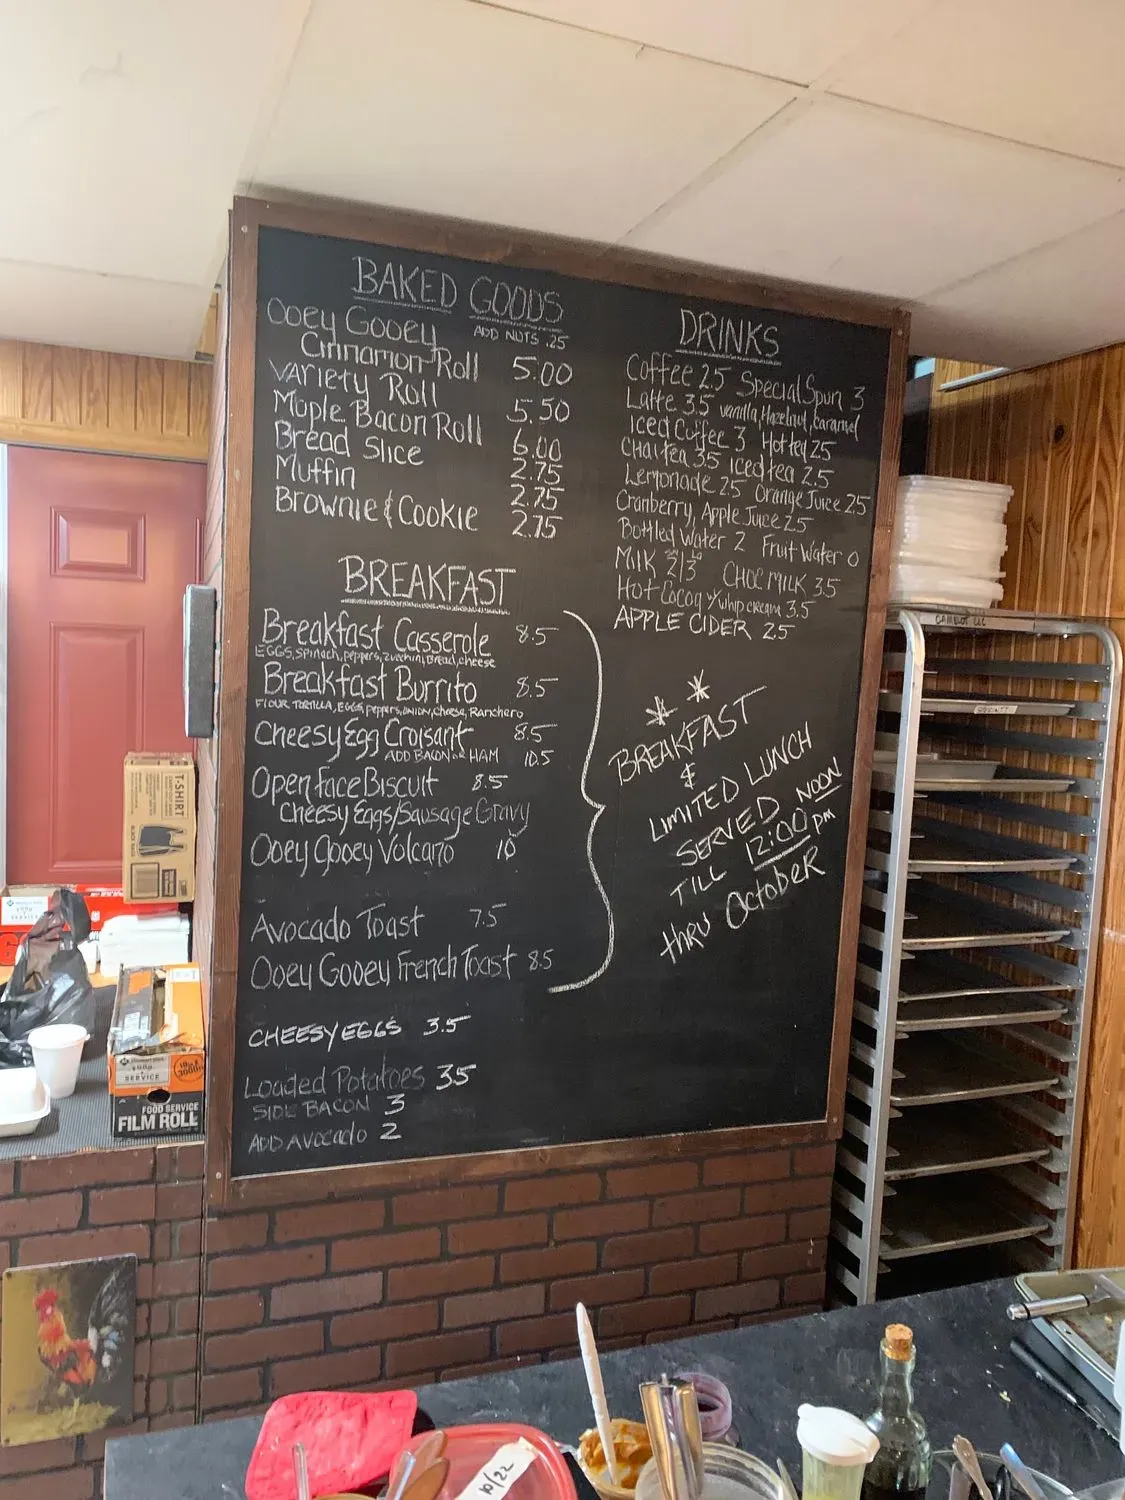 BAKED GOODS
Ooey Gooey ADD NUTS .25
Cinnamon Roll 5.00
Variety Roll 5.50
Maple Bacon Roll 6.00
Bread Slice 2.75
Muffin 2.75
Brownie & Cookie 2.75
BREAKFAST
Breakfast Casserole 8.5
EGGS, Spinach, peppers, zucchini, Bread, cheese
Breakfast Burrito 8.5
FLOUR TORTILLA, EGGS, peppers, ONION, cheese, Ranchero
Cheesy Egg Croisant 8.5
ADD BACON or HAM 10.5
Open Face Biscuit 8.5
Cheesy Eggs/Sausage Gravy
Ooey Gooey Volcano 10
Avocado Toast 7.5
Ooey Gooey French Toast 8.5
CHEESY EGGS 3.5
Loaded Potatoes 3.5
SIDE BACON 3
ADD AVOCADO 2
DRINKS
Coffee 2.5 Special Spun 3
Latte 3.5 vanilla, Hazelnut, caramel
Iced Coffee 3 Hot tea 2.5
Chai tea 3.5 Iced tea 2.5
Lemonade 2.5 Orange Juice 2.5
Cranberry, Apple Juice 2.5
Bottled Water 2 Fruit Water 0
Milk sm 2 | lg 3 CHOC MILK 3.5
Hot Cocoa w/whip cream 3.5
APPLE CIDER 2.5
BREAKFAST
&
LIMITED LUNCH
SERVED NOON
TILL 12:00 pm
thru OctobeR
T-SHIRT
SERVICE
FOOD SERVICE
FILM ROLL
10/22